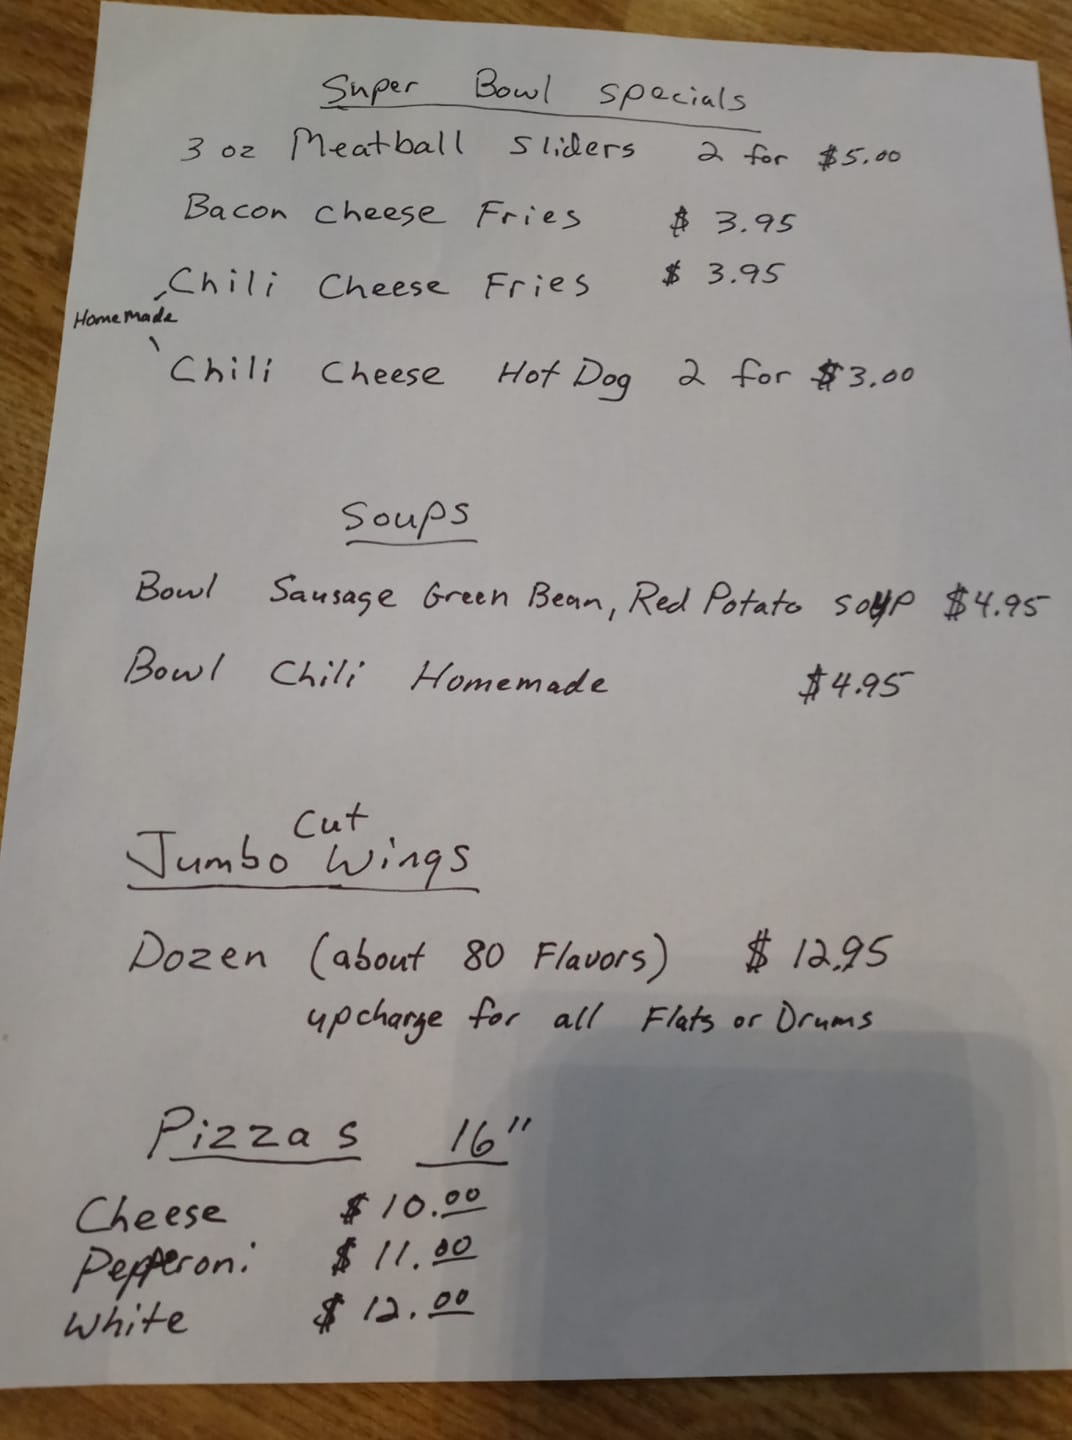 Super Bowl specials
3 oz Meatball Sliders 2 for $5.00
Bacon Cheese Fries $ 3.95
Chili Cheese Fries $ 3.95
Homemade
Chili Cheese Hot Dog 2 for $3.00
Soups
Bowl Sausage Green Bean, Red Potato soup $4.95
Bowl Chili Homemade $4.95
Cut
Jumbo Wings
Dozen (about 80 Flavors) $ 12.95
upcharge for all Flats or Drums
Pizzas 16"
Cheese $ 10.00
Pepperoni $ 11.00
White $ 12.00